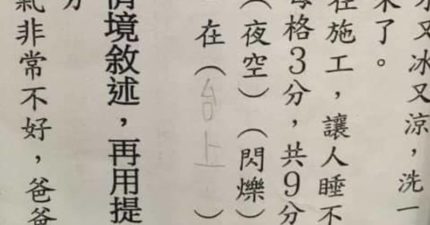 又冰又涼，洗一
來了。
在施工，讓人睡不
每格3分，共9分
（夜空）（閃爍）
在（台上）
情境敘述，再用提
分
氣非常不好，爸爸